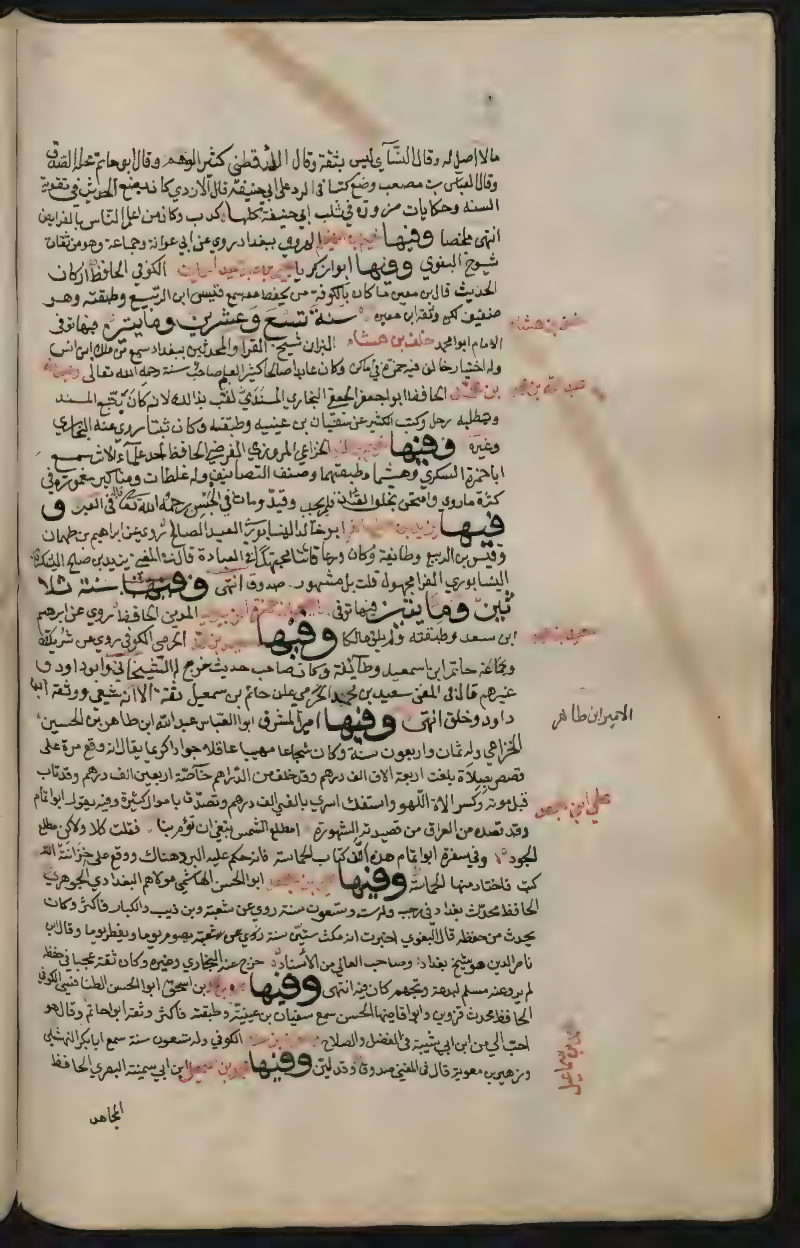 مالا اصل له وقال النسآي ليس بثقة وقال الدارقطني كثير الوهم وقال ابو حاتم محله الصدق
وقال العباس بن مصعب وضع كتبا في الرد على ابي حنيفة قال الازدي كان يضع الحديث في تقوية
السنه وحكايات مزورة في ثلب ابي حنيفة كلها كدب وكان من اعلم الناس بالفرايض
انتهى ملخصا وفيها المروي ببغداد روى عن ابي عوانة وجماعة وهو من ثقات
شيوخ البغوي وفيها ابو زكريا الكوفي الحافظ اركان
الحديث قال بن معين ما كان بالكوفة من يحفظ معه سمع قيس ابن الربيع وطبقته وهو
ضعيف لكن وثقه ابن معين سنة تسع وعشرين ومايتين فيها توفي
الامام ابو محمد خلف بن هشام البزار شيخ القرا والمحدثين ببغداد سمع من ملك ابن انس
وله اختيار خالف فيه حمزة في اماكن وكان عابدا صالحا كثير العلم صاحب سنة رحمه الله تعالى وفيها
بن محمد الحافظ ابو جعفر الجعفي البخاري المسندي لقب بذالك لانه كان يتتبع المسند
ويتطلبه رحل وكتب الكثير عن سفيان بن عينيه وطبقته وكان ثبتا روى عنه البخاري
وغيره وفيها الخزاعي المروزي الفرضي الحافظ احد علماء الاثر سمع
ابا حمزة السكري وهشيما وطبقتهما وصنف التصانيف وله غلطات ومناكير مغمورة في
كثرة ماروى وامتحن بخلق القران فلم يجب وقيد ومات في الحبس رحمه الله تعالى في العبر و
فيها ابو خالد النيسابوري العبد الصالح روى عن ابراهيم بن طهمان
وقيس بن الربيع وطايفة وكان ورعا قانتا مجتهدا في العبادة قال في المغني يزيد بن صالح اليشكري
النيسابوري الفرا مجهول قلت بل مشهور صدوق انتهى وفيها سنة ثلا
ثين ومايتين فيها توفي ابراهيم بن حمزة الزبيري المدني الحافظ روى عن ابرهيم
ابن سعد وطبقته ولم يلق مالكا وفيها الجرمي الكوفي روى عن شريك
وجماعة حاتم ابن اسمعيل وطايفة وكان صاحب حديث خرج له الشيخان وابو داود و
غيرهم قال في المغني سعيد بن محمد الجرمي على حاتم بن سمعيل ثقة الا انه شيعي ووثقه ابو
داود وخلق انتهى وفيها امير المشرق ابو العباس عبد الله ابن طاهر بن الحسين
الخزاعي وله ثمان واربعون سنة وكان شجاعا مهيبا عاقلا جوادا كريما يقال انه وقع مرة على
قصص بصلاة بلغت اربعة الاف الف درهم وقد خلف من الدراهم خاصة اربعين الف درهم وقد تاب
قبل موته وكسر الاة اللهو واستفك اسرى بالفي الف درهم وتصدق باموال كثيرة وفيه يقول ابو تمام
وقد قصده من العراق من قصيدته المشهورة امطلع الشمس ينبغي ان تؤم بنا فقلت كلا ولكن مطلع
الجود وفي سفرة ابو تمام هذه الف كتاب الحماسة فانه حكم عليه البرد هناك ووقع على خزانة
كتب فاختار منها الحماسة وفيها ابو الحسن الهاشمي مولاهم البغدادي الجوهري
الحافظ محدث بغداد في رجب وله ست وتسعون سنة روى عن شعبة وبن ذيب والكبار فاكثر وكان
يحدث من حفظه قال البغوي اخبرت انه مكث ستين سنة روى عن شعبة يصوم يوما ويفطر يوما وقال ابن
ناصر الدين هو شيخ بغداد وصاحب العالي من الأسناد خرج عنه البخاري وغيره وكان ثقة عجبا في حفظه
لم يرو عنه مسلم لبدعة وتجهم كان فيه انتهى وفيها بن اسحق ابو الحسن الطنافسي الكوفي
الحافظ محدث قزوين وابو قاضيها الحسن سمع سفيان بن عيينة وطبقته فاكثر وثقه ابو حاتم وقال هو
احب الي من ابن ابي شيبة في الفضل والصلاح الكوفي وله تسعون سنة سمع ابا بكر النهشلي
وزهير بن معوية قال في المغني صدوق وقد لين وفيها ابن ابي سمينه البصري الحافظ
المجاهد
خلف بن هشام
عبد الله بن محمد
سعيد بن محمد
الامير ابن طاهر
علي ابن الجعد
محمد بن اسماعيل